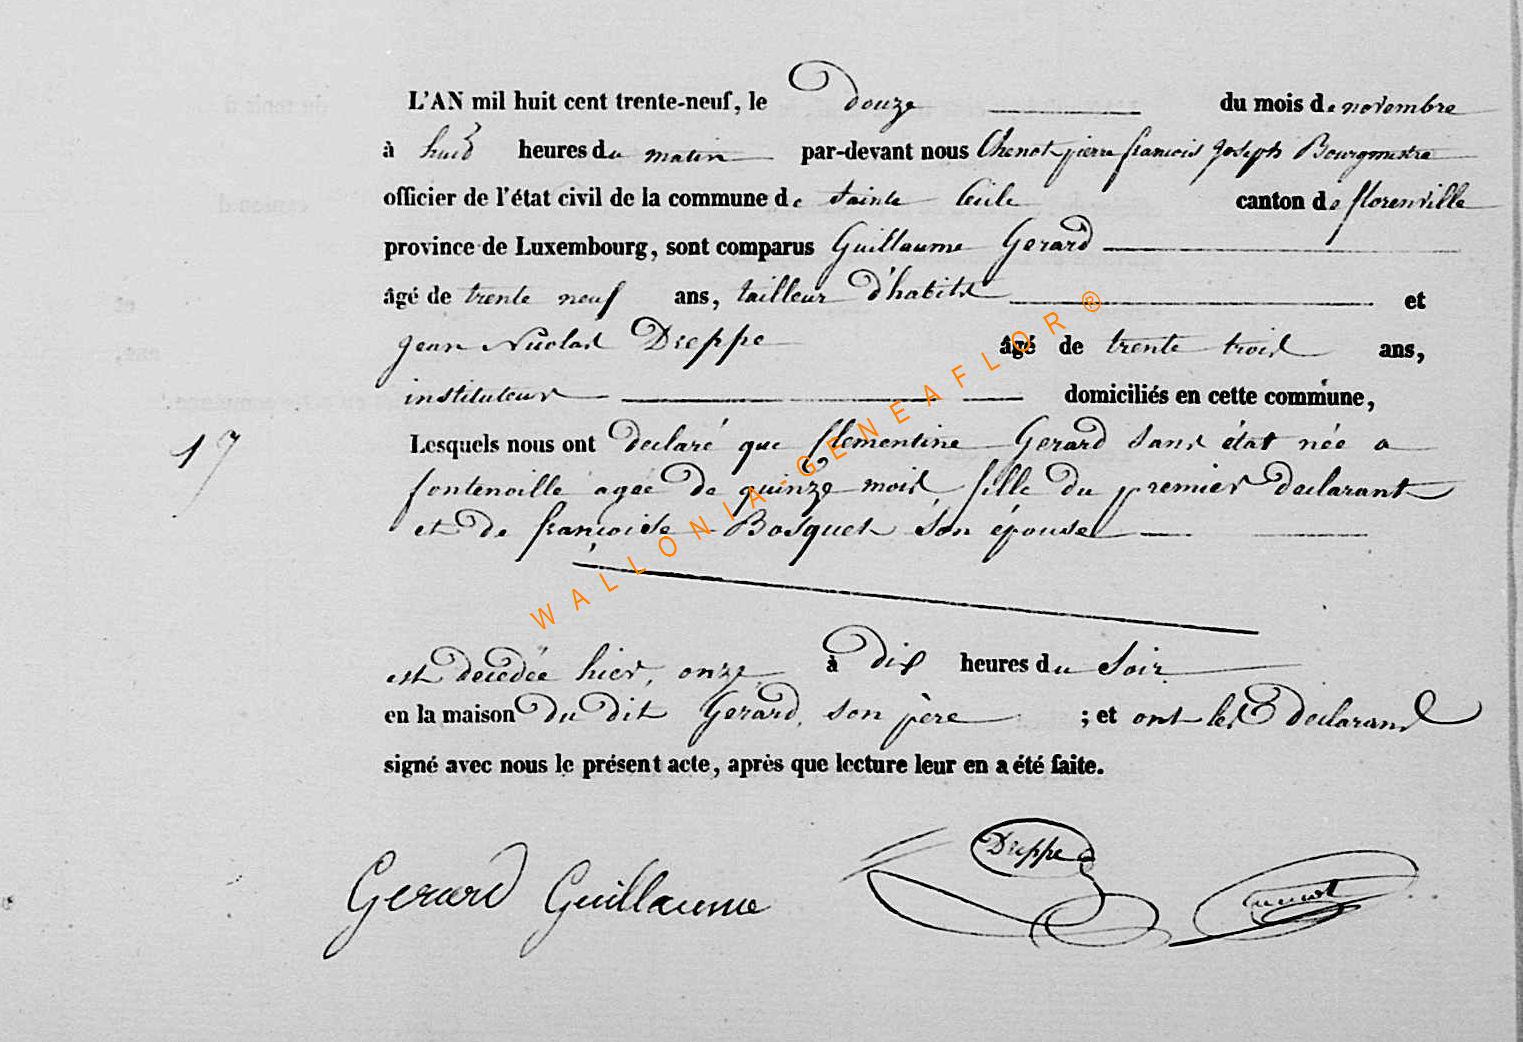 L'AN mil huit cent trente-neuf, le Douze du mois de novembre
à huit heures du matin par-devant nous Chenot pierre francois Joseph Bourgmestre
officier de l'état civil de la commune de Sainte Cécile canton de florenville
province de Luxembourg, sont comparus Guillaume Gerard
âgé de trente neuf ans, tailleur d'habits et
Jean Nicolas Dreppe âgé de trente trois ans,
instituteur domiciliés en cette commune,
17 Lesquels nous ont declaré que Clementine Gerard sans état née a
fontenoille agée de quinze mois, fille du premier declarant
et de françoise Bosquet son épouse
est decedée hier, onze à dix heures du Soir
en la maison du dit Gerard, son père ; et ont les declarans
signé avec nous le présent acte, après que lecture leur en a été faite.
WALLONIA-GENEAFLOR®
Gerard Guillaume Dreppe Chenot